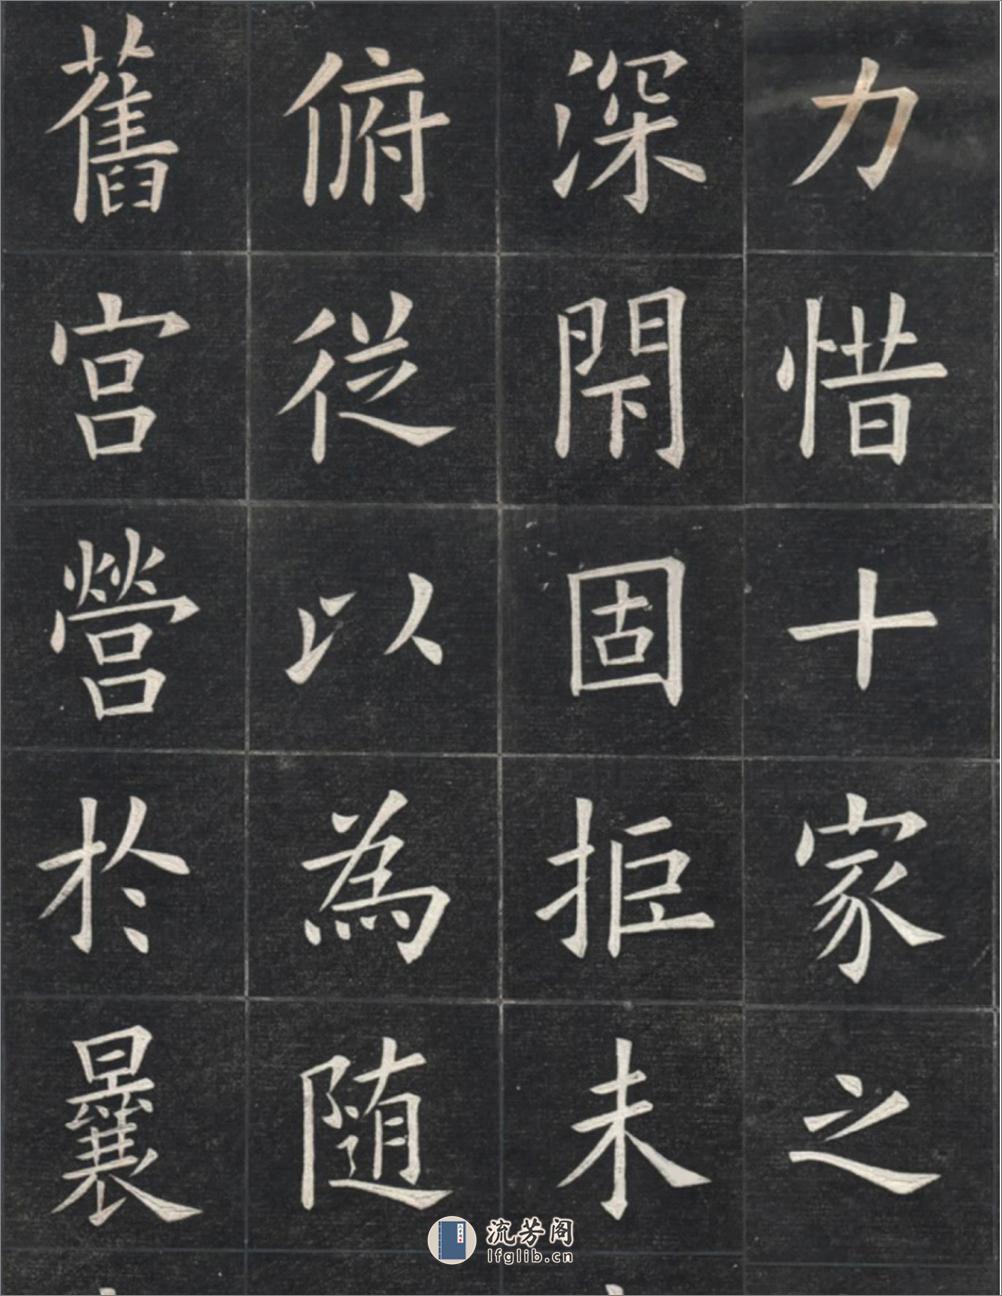 力惜十家之
深閇固拒未
俯従以為随
舊宮營於曩
流芳阁
lfglib.cn